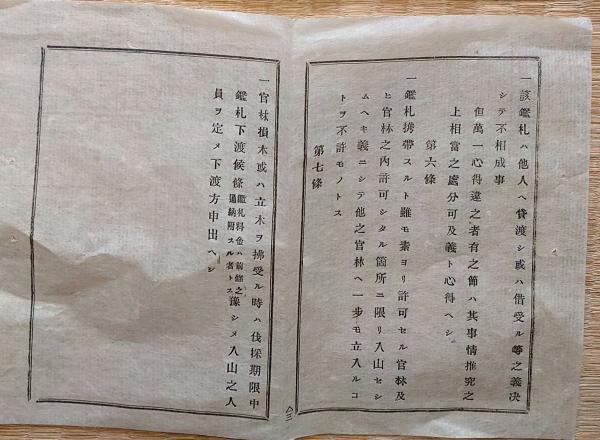 一該鑑札ハ他人ヘ貸渡シ或ハ借受ル等之義決
シテ不相成事
但萬一心得違之者有之節ハ其事情推究之
上相當之處分可及義ト心得ヘシ
第六條
一鑑札携帶スルト雖モ素ヨリ許可セル官林及
ヒ官林之内許可シタル箇所ニ限リ入山セシ
ムヘキ義ニシテ他之官林ヘ一歩モ立入ルコ
トヲ不許モノトス
第七條
一官林損木或ハ立木ヲ拂受ル時ハ伐採期限中
鑑札下渡候條鑑札料金ハ前條之通納附スル者トス豫シメ入山之人
員ヲ定メ下渡方申出ヘシ